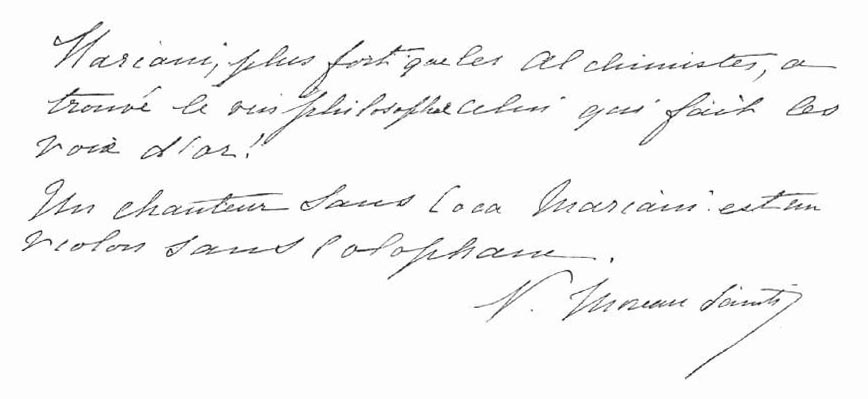 Mariani, plus fort que les Alchimistes, a
trouvé le vin philosophe celui qui fait les
voix d'or!
Un chanteur sans Coca Mariani est un
violon sans Colophane.
N. Moreau Sainti